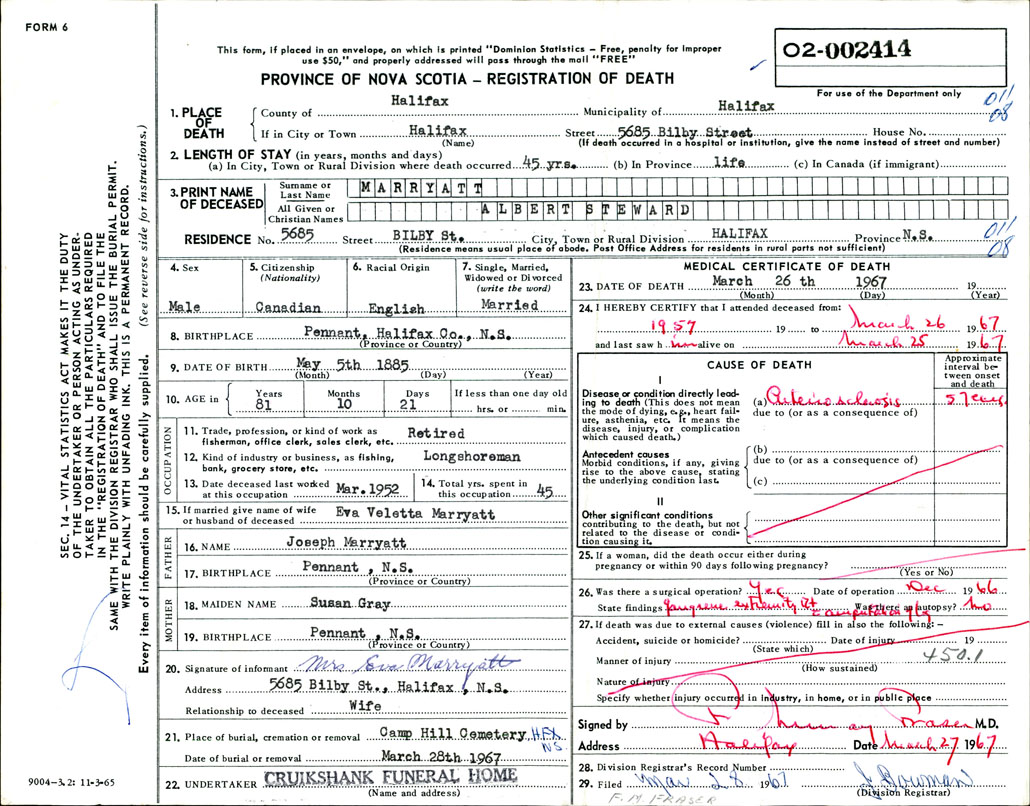 FORM 6
This form, if placed in an envelope, on which is printed "Dominion Statistics – Free, penalty for improper
use $50," and properly addressed will pass through the mail "FREE"
02-002414
PROVINCE OF NOVA SCOTIA – REGISTRATION OF DEATH
For use of the Department only
011
08
1. PLACE OF DEATH
County of Halifax Municipality of Halifax
If in City or Town Halifax Street 5685 Bilby Street House No.
(Name) (If death occurred in a hospital or institution, give the name instead of street and number)
2. LENGTH OF STAY (in years, months and days)
(a) In City, Town or Rural Division where death occurred 45 yrs. (b) In Province life (c) In Canada (if immigrant)
3. PRINT NAME OF DECEASED
Surname or Last Name MARRYATT
All Given or Christian Names ALBERT STEWARD
011
08
RESIDENCE No. 5685 Street BILBY St. City, Town or Rural Division HALIFAX Province N.S.
(Residence means usual place of abode. Post Office Address for residents in rural parts not sufficient)
4. Sex
Male
5. Citizenship
(Nationality)
Canadian
6. Racial Origin
English
7. Single, Married,
Widowed or Divorced
(write the word)
Married
8. BIRTHPLACE Pennant, Halifax Co., N.S.
(Province or Country)
9. DATE OF BIRTH May 5th 1885
(Month) (Day) (Year)
10. AGE in Years 81 Months 10 Days 21 If less than one day old
hrs. or min.
OCCUPATION
11. Trade, profession, or kind of work as
fisherman, office clerk, sales clerk, etc. Retired
12. Kind of industry or business, as fishing,
bank, grocery store, etc. Longshoreman
13. Date deceased last worked
at this occupation Mar.1952
14. Total yrs. spent in
this occupation 45
15. If married give name of wife
or husband of deceased Eva Veletta Marryatt
FATHER
16. NAME Joseph Marryatt
17. BIRTHPLACE Pennant, N.S.
(Province or Country)
MOTHER
18. MAIDEN NAME Susan Gray
19. BIRTHPLACE Pennant , N.S.
(Province or Country)
20. Signature of informant Mrs Eva Marryatt
Address 5685 Bilby St., Halifax , N.S.
Relationship to deceased Wife
21. Place of burial, cremation or removal Camp Hill Cemetery, HFX
NS.
Date of burial or removal March 28th 1967
22. UNDERTAKER CRUIKSHANK FUNERAL HOME
(Name and address)
MEDICAL CERTIFICATE OF DEATH
23. DATE OF DEATH March 26 th 1967 19
(Month) (Day) (Year)
24. I HEREBY CERTIFY that I attended deceased from:
1957 19 to March 26 1967
and last saw him alive on March 25 1967
CAUSE OF DEATH
Approximate interval between onset and death
I
Disease or condition directly leading to death (This does not mean the mode of dying, e.g., heart failure, asthenia, etc. It means the disease, injury, or complication which caused death.)
(a) Arteriosclerosis 5 years
due to (or as a consequence of)
Antecedent causes
Morbid conditions, if any, giving rise to the above cause, stating the underlying condition last.
(b)
due to (or as a consequence of)
(c)
II
Other significant conditions
contributing to the death, but not related to the disease or condition causing it.
25. If a woman, did the death occur either during
pregnancy or within 90 days following pregnancy?
(Yes or No)
26. Was there a surgical operation? Yes Date of operation Dec 1966
State findings gangrene extremity Rt amputation leg Was there an autopsy? No
27. If death was due to external causes (violence) fill in also the following: –
Accident, suicide or homicide? Date of injury 19
(State which)
Manner of injury 450.1
(How sustained)
Nature of injury
Specify whether injury occurred in Industry, in home, or in public place
Signed by Fraser M.D.
Address Halifax Date March 27 1967
28. Division Registrar's Record Number
29. Filed Mar 28 1967 Bowman
(Division Registrar)
F. M. FRASER
SEC. 14 – VITAL STATISTICS ACT MAKES IT THE DUTY
OF THE UNDERTAKER OR PERSON ACTING AS UNDER-
TAKER TO OBTAIN ALL THE PARTICULARS REQUIRED
IN THE "REGISTRATION OF DEATH" AND TO FILE THE
SAME WITH THE DIVISION REGISTRAR WHO SHALL ISSUE THE BURIAL PERMIT.
WRITE PLAINLY WITH UNFADING INK. THIS IS A PERMANENT RECORD.
Every item of information should be carefully supplied. (See reverse side for instructions.)
9004–3.2: 11-3-65